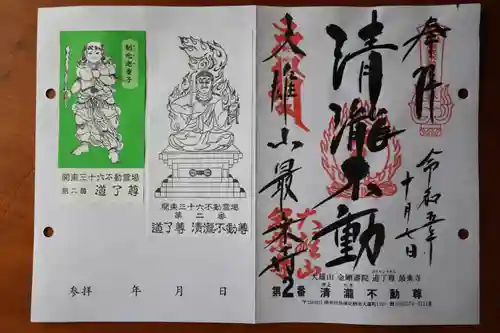 奉拝
令和五年
十月七日
清瀧不動
大雄山最乗寺
大雄山
大雄山 金剛壽院 道了尊 最乗寺
第2番 清瀧不動尊
制吒迦童子
関東三十六不動霊場
第二番 道了尊
関東三十六不動霊場
第二番
道了尊 清瀧不動尊
参拝 年 月 日